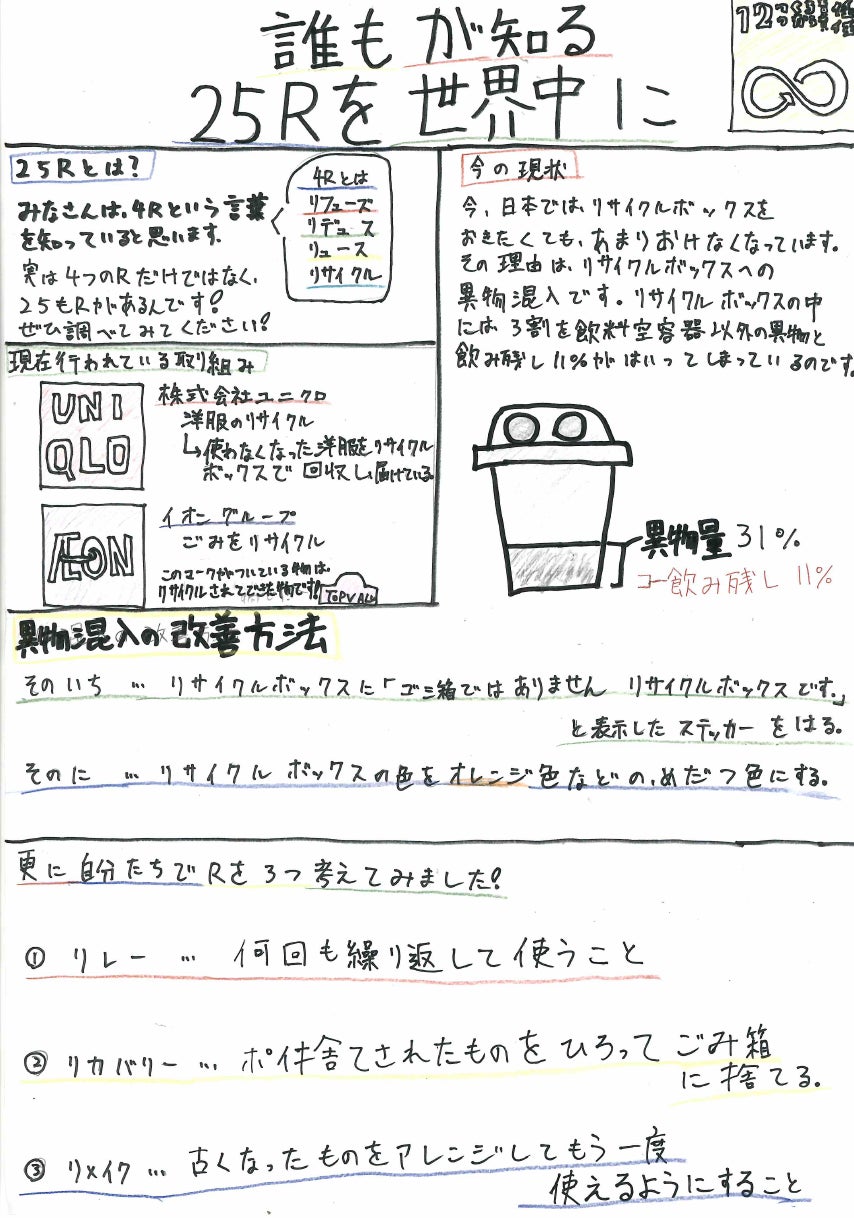 誰もが知る
25Rを世界中に
12つくる責任つかう責任
25Rとは?
みなさんは、4Rという言葉
を知っていると思います。
実は4つのRだけではなく、
25もRがあるんです!
ぜひ調べてみてください!
4Rとは
リフューズ
リデュース
リュース
リサイクル
現在行われている取り組み
UNI
QLO
株式会社ユニクロ
洋服のリサイクル
↳使わなくなった洋服をリサイクル
ボックスで回収し、届けている。
ÆON
イオングループ
ごみをリサイクル
このマークがついている物は、
リサイクルされてできた物です!
TOPVALU
今の現状
今、日本では、リサイクルボックスを
おきたくても、あまりおけなくなっています。
その理由は、リサイクルボックスへの
異物混入です。リサイクルボックスの中
には、3割を飲料空容器以外の異物と
飲み残し11%がはいってしまっているのです。
異物量31%
飲み残し 11%
異物混入の改善方法
そのいち … リサイクルボックスに「ゴミ箱ではありません リサイクルボックスです。」
と表示したステッカーをはる。
そのに … リサイクルボックスの色をオレンジ色などの、めだつ色にする。
更に自分たちでRを3つ考えてみました!
① リレー … 何回も繰り返して使うこと
② リカバリー … ポイ捨てされたものをひろってごみ箱
に捨てる。
③ リメイク … 古くなったものをアレンジしてもう一度
使えるようにすること